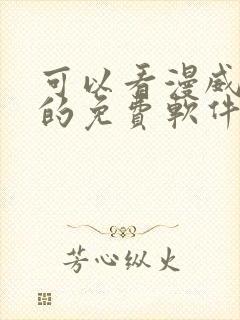 可以看漫威
的免費軟件
芳心纵火